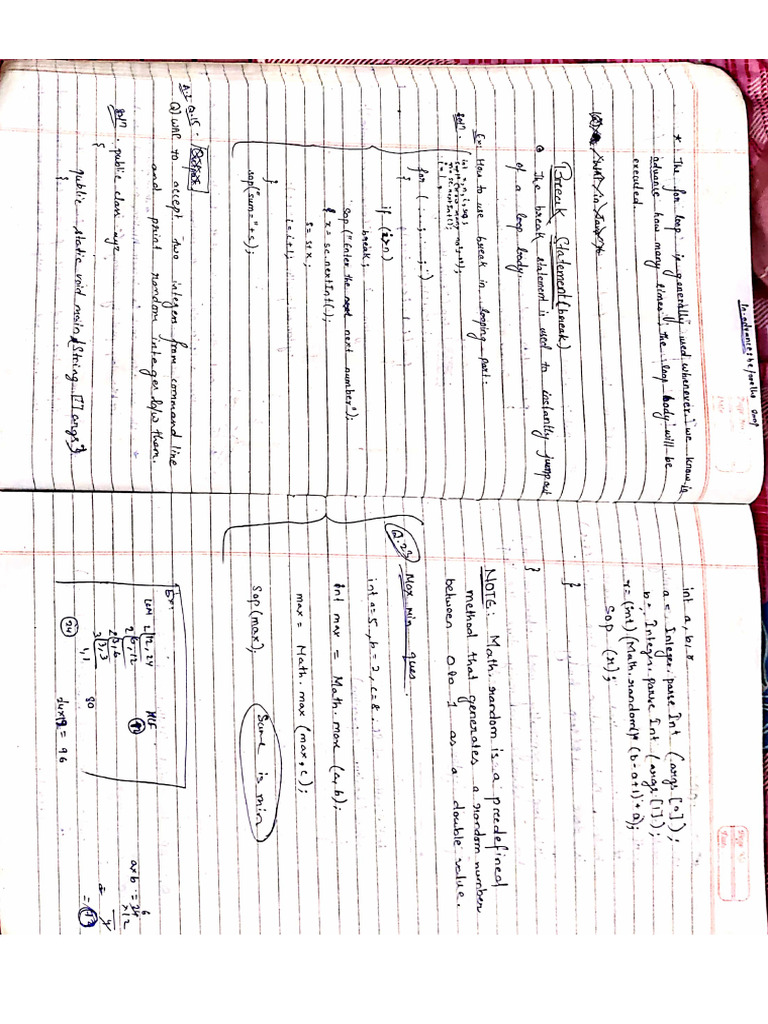 In-advance: be/or elko
* The for loop is generally used whenever we know in
advance how many times the loop body will be
executed.
Break Statement (break)
The break statement is used to instantly jump out
of a loop body.
Ex: How to use break in looping part.
Soln.
i = 1;
for (...;...;...)
{
if (i>n)
break;
sop("Enter the next number");
x = sc.nextInt();
s = s+x;
i = i+1;
}
sop("sum="+s);
A.2 Q.15.
Q) WAP to accept two integers from command line
and print random integer b/w them.
Soln. public class xyz
{
public static void main(String []args)
{
int a, b, r
a = Integer.parseInt (args[0]);
b = Integer.parseInt (args[1]);
r = (int)(Math.random()* (b-a+1)+a);
Sop (r);
}
}
NOTE: Math.random is a predefined
method that generates a random number
between 0 to 1 as a double value.
Q.23 Max min ques.
int a=5, b=2, c=8.
int max = Math.max (a,b);
max = Math.max (max, c);
Sop(max);
Same is min
Ex:
LCM HCF
2|12,24
2|6,12
2|3,6
3|3,3
1,1
24
24x12 = 96
axb = 24
x12